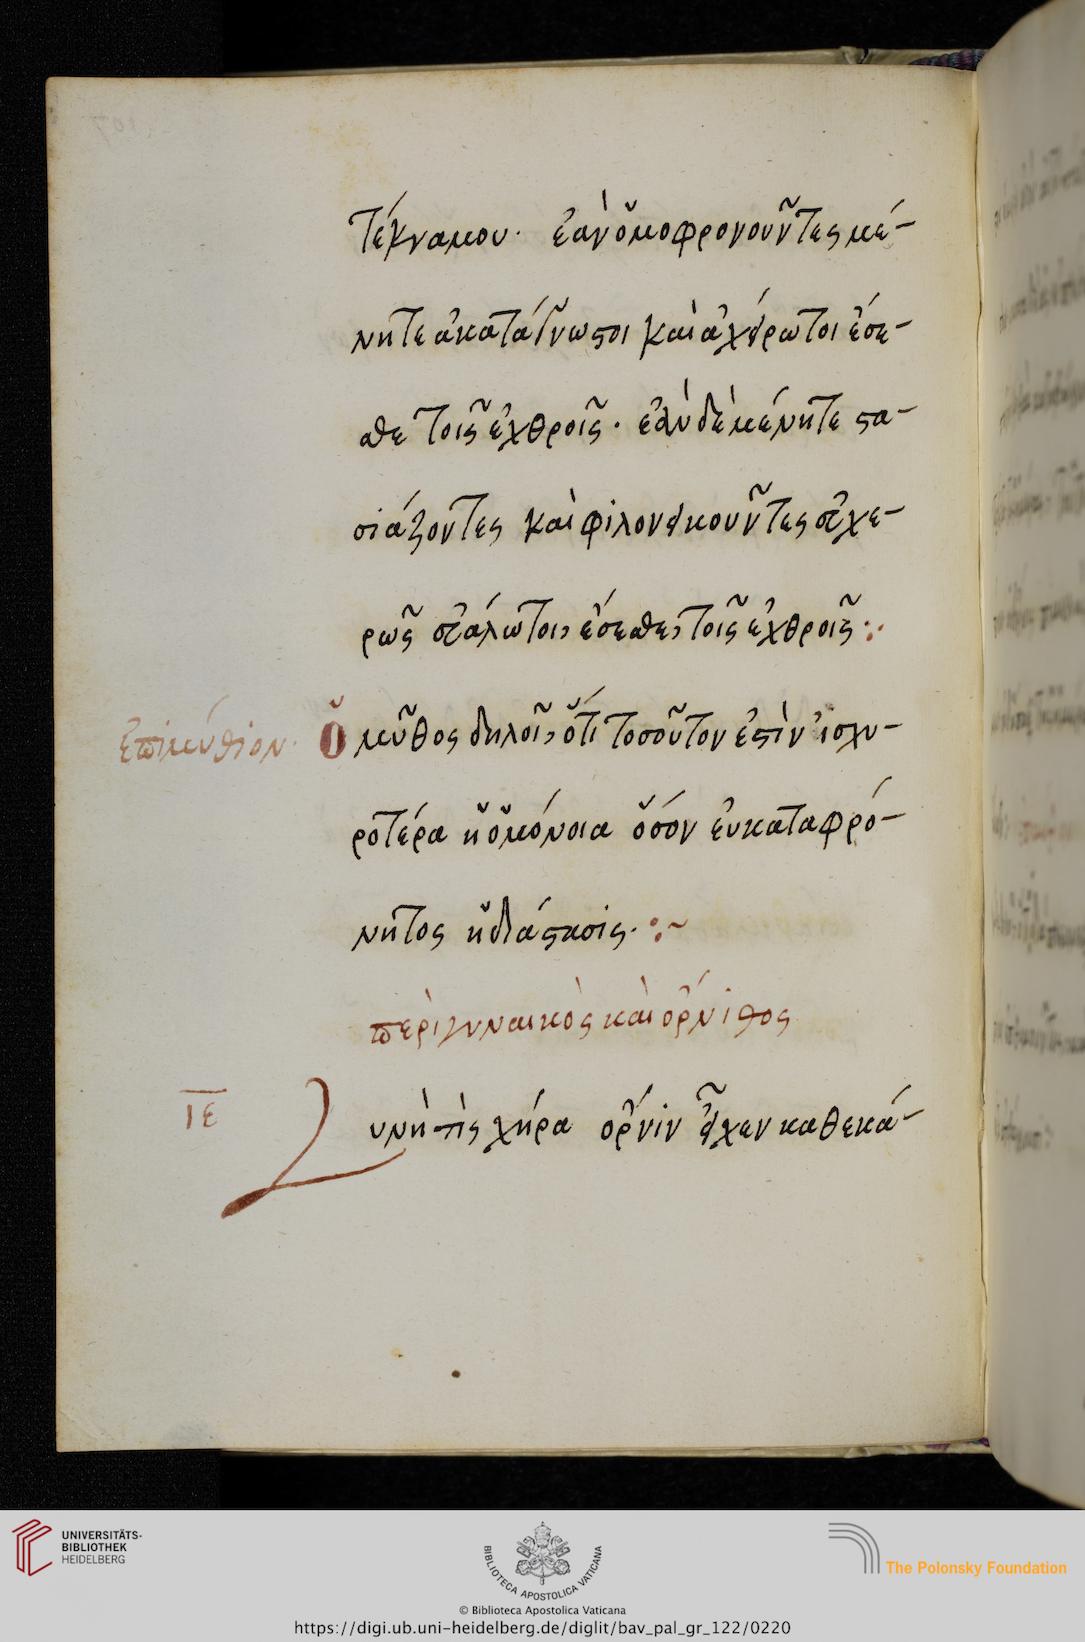 τέκνα μου· ἐὰν ὁμοφρονοῦντες μέ-
νητε ἀκατάγνωστοι καὶ ἀχείρωτοι ἔσε-
σθε τοῖς ἐχθροῖς· ἐὰν δὲ μένητε στα-
σιάζοντες καὶ φιλονεικοῦντες εὐχε-
ρῶς εὐάλωτοι, ἔσεσθε, τοῖς ἐχθροῖς:·
ἐπιμύθιον· Ὁ μῦθος δηλοῖ, ὅτι τοσοῦτον ἐστὶν ἰσχυ-
ροτέρα ἡ ὁμόνοια ὅσον εὐκαταφρό-
νητος ἡ διάστασις· :~
περὶ γυναικὸς καὶ ὄρνιθος
ιε Γυνή τις χήρα ὄρνιν εἶχεν καθεκά-
UNIVERSITÄTS-
BIBLIOTHEK
HEIDELBERG
BIBLIOTECA APOSTOLICA VATICANA
The Polonsky Foundation
© Biblioteca Apostolica Vaticana
https://digi.ub.uni-heidelberg.de/diglit/bav_pal_gr_122/0220